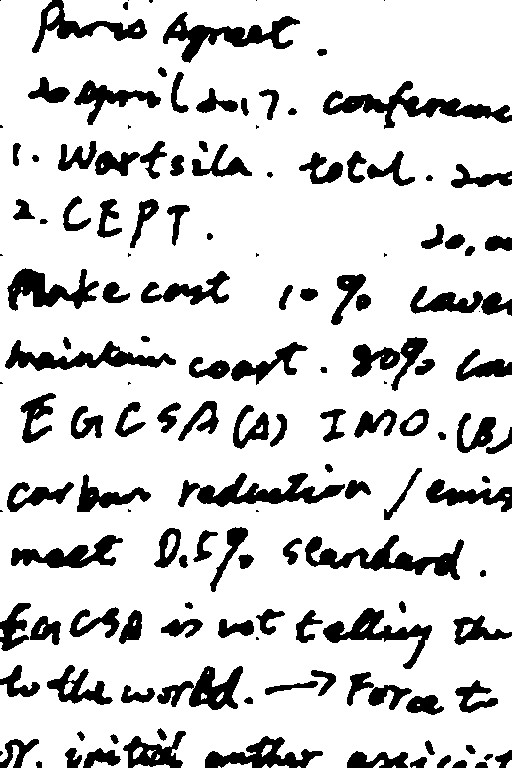 Paris Agreet.
20 April 2017. conference
1. Wartsila. total. 200
2. CEPT. 20,00
Make cost 10% lower
maintain coart. 80% low
EGCSA (A) IMO. (B)
carbon reduction / emis
meet 0.5% standard.
EGCSA is not telling the
to the world. → Force to
or. initial another associat